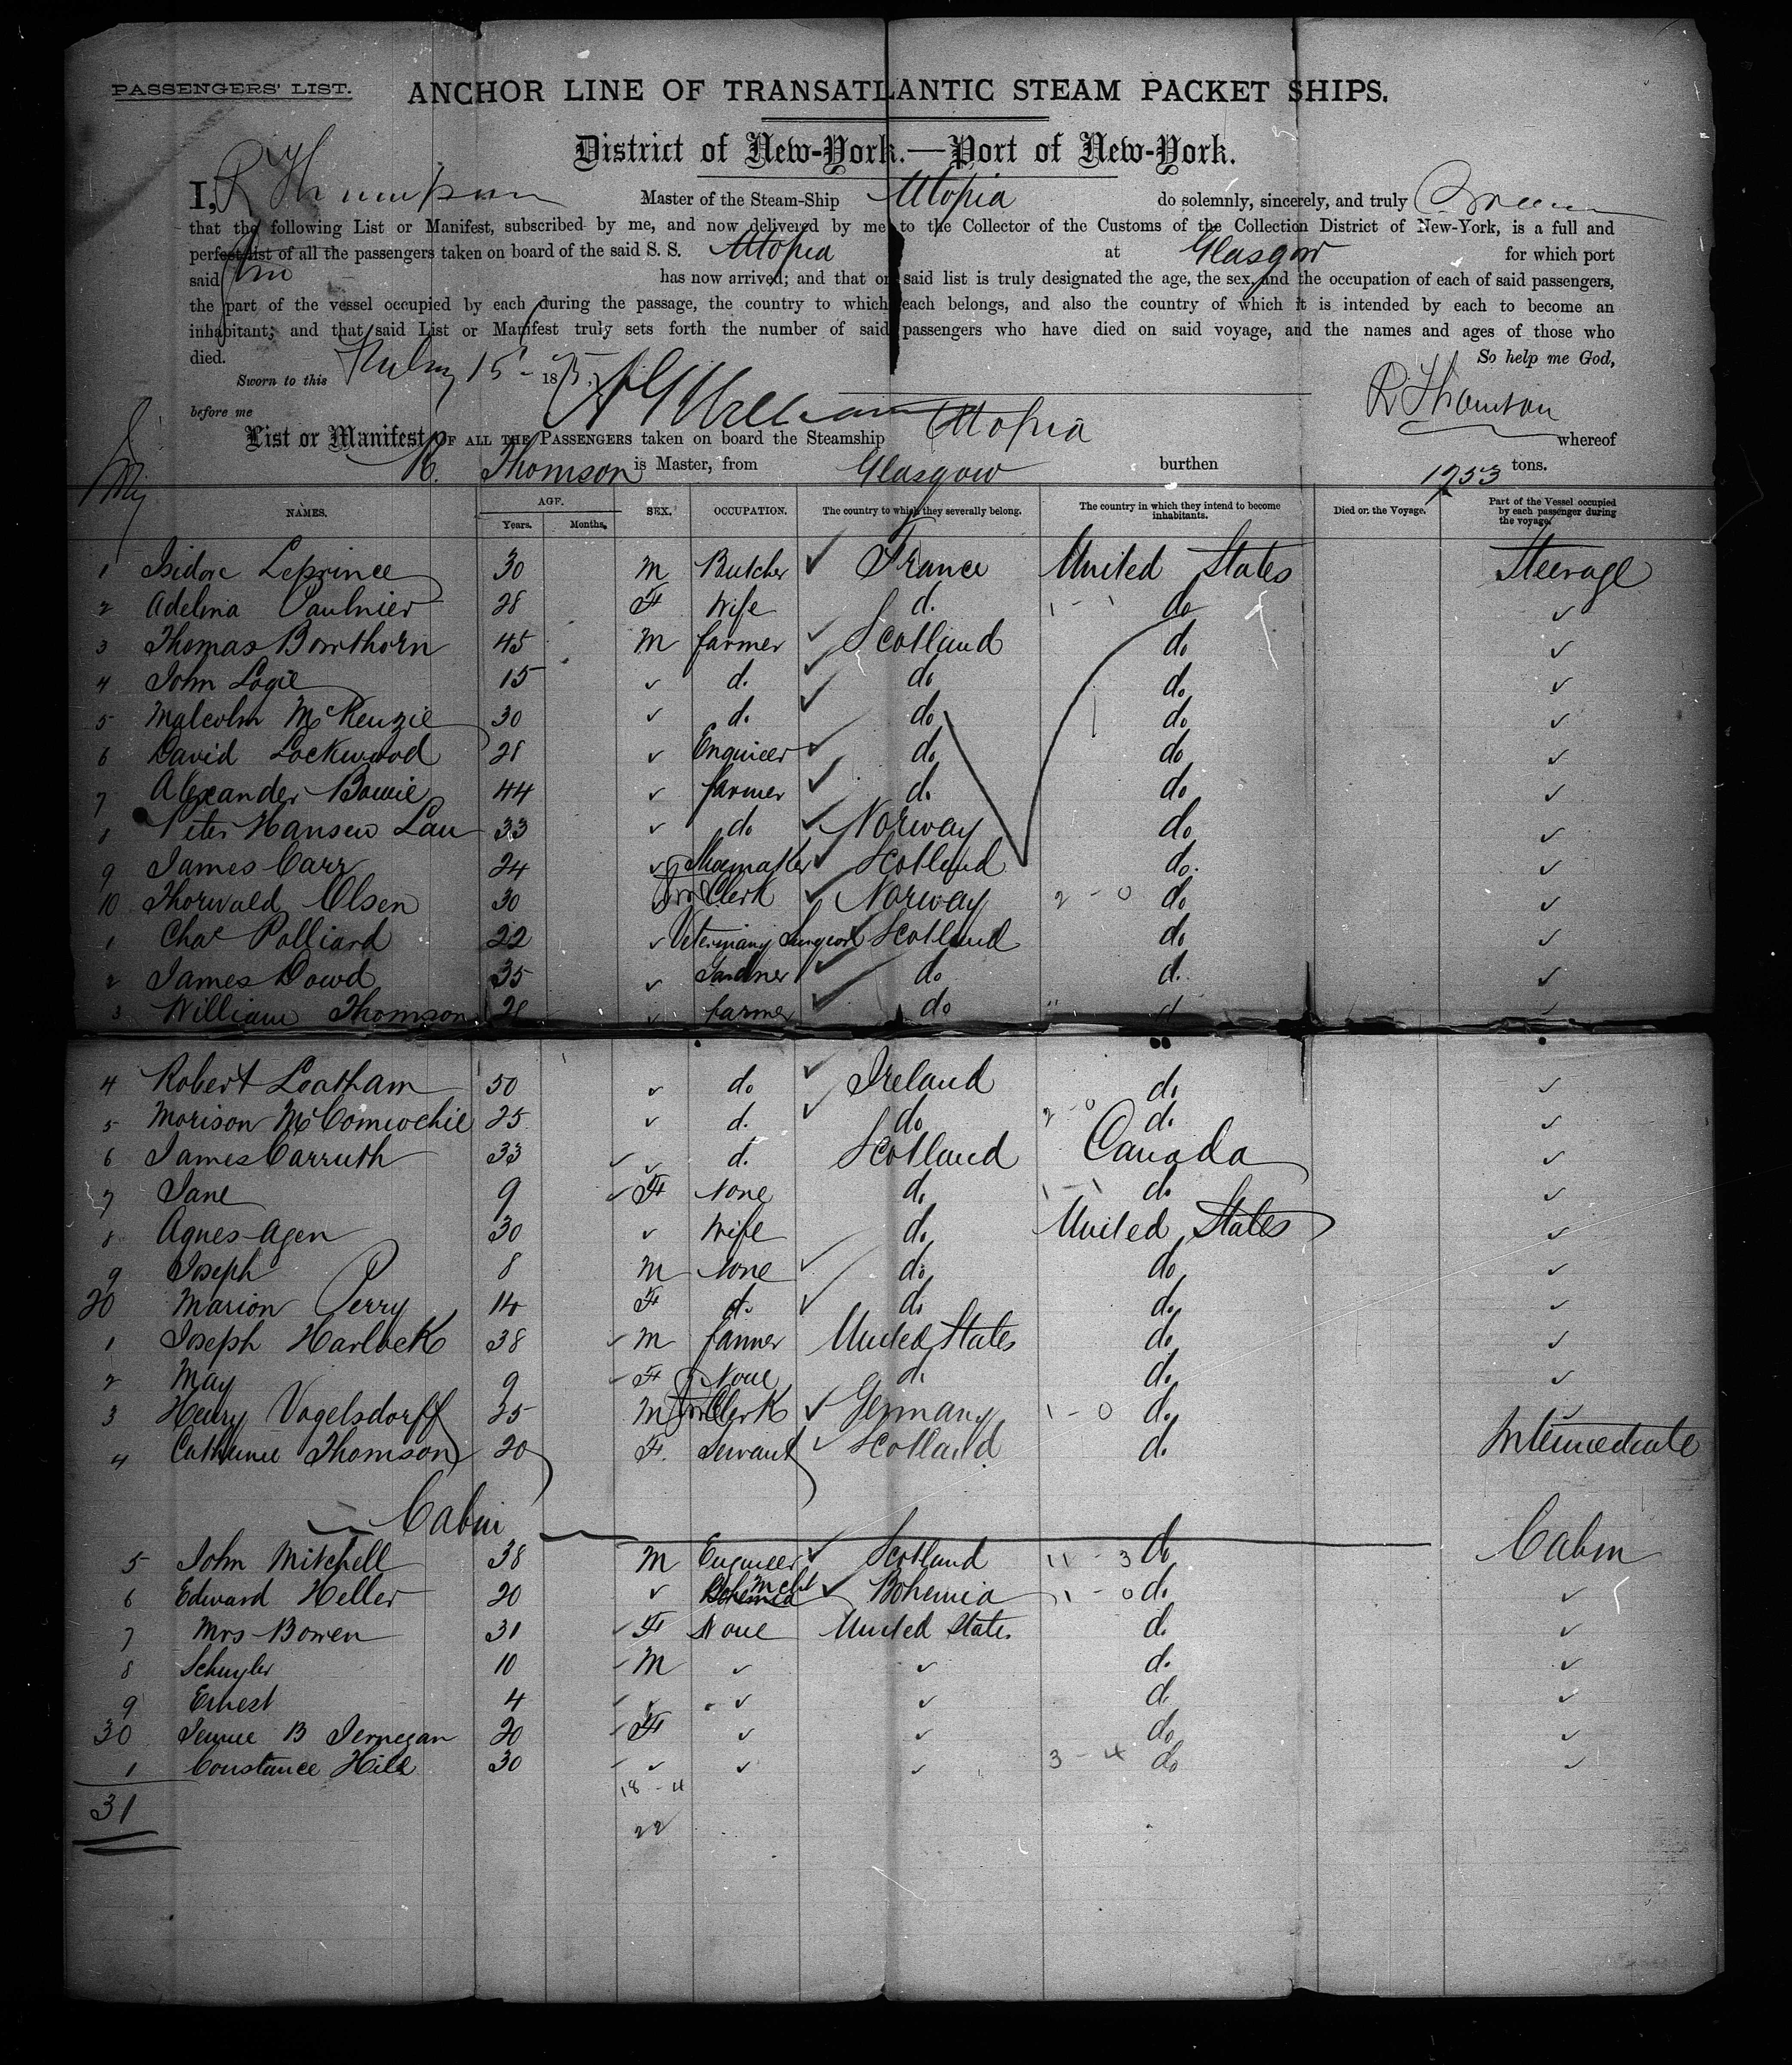 PASSENGERS' LIST. ANCHOR LINE OF TRANSATLANTIC STEAM PACKET SHIPS.
District of New-York.—Port of New-York.
I, R Thompson Master of the Steam-Ship Utopia do solemnly, sincerely, and truly
that the following List or Manifest, subscribed by me, and now delivered by me to the Collector of the Customs of the Collection District of New-York, is a full and
perfect list of all the passengers taken on board of the said S. S. Utopia at Glasgow for which port
said has now arrived; and that on said list is truly designated the age, the sex, and the occupation of each of said passengers,
the part of the vessel occupied by each during the passage, the country to which each belongs, and also the country of which it is intended by each to become an
inhabitant; and that said List or Manifest truly sets forth the number of said passengers who have died on said voyage, and the names and ages of those who
died. So help me God,
Sworn to this 15 1875
before me R Thomson
List or Manifest OF ALL THE PASSENGERS taken on board the Steamship Utopia whereof
R. Thomson is Master, from Glasgow burthen 1753 tons.
NAMES. AGE. Years. Months. SEX. OCCUPATION. The country to which they severally belong. The country in which they intend to become inhabitants. Died on the Voyage. Part of the Vessel occupied by each passenger during the voyage.
1 Isidore Leprince 30 M Butcher ✓ France United States Steerage
2 Adelina Paulnier 28 F Wife d. 1 - 1 do ✓
3 Thomas Bowthorn 45 M farmer ✓ Scotland do ✓
4 John Logie 15 ✓ d. ✓ do do ✓
5 Malcolm McKenzie 30 ✓ d. ✓ do do ✓
6 David Lockwood 28 ✓ Engineer ✓ do do ✓
7 Alexander Bowie 44 ✓ farmer ✓ d. do ✓
8 Peter Hansen Lau 33 ✓ do ✓ Norway do ✓
9 James Carr 24 ✓ Shoemaker ✓ Scotland do. ✓
10 Thorwald Olsen 30 ✓ Clerk ✓ Norway 2 - 0 do ✓
1 Chas Polliard 22 ✓ Veterinary Surgeon ✓ Scotland do ✓
2 James Dowd 35 ✓ Gardner ✓ do d. ✓
3 William Thomson 28 ✓ farmer ✓ do d
4 Robert Leatham 50 ✓ do ✓ Ireland do ✓
5 Morison McComiochie 25 ✓ d. ✓ do 2 - 0 d. ✓
6 James Carruth 33 ✓ ✓ d. Scotland Canada ✓
7 Jane 9 ✓ F None d. 1 - 1 do ✓
8 Agnes Agen 30 ✓ Wife d. United States ✓
9 Joseph 8 M None ✓ do do ✓
20 Marion Perry 14 F d. ✓ do do. ✓
1 Joseph Harlock 38 ✓ M farmer United States do ✓
2 May 9 ✓ F None d. do. ✓
3 Henry Vogelsdorff 25 M Clerk ✓ Germany 1 - 0 do. ✓
4 Catherine Thomson 20 F. Servant ✓ Scotland d. Intermediate
Cabin
5 John Mitchell 38 M Engineer ✓ Scotland 11 - 3 do Cabin
6 Edward Heller 20 ✓ Mcht ✓ Bohemia 1 - 0 d. ✓
7 Mrs Bowen 31 ✓ F None United State. d. ✓
8 Schuyler 10 ✓ M ✓ ✓ d. ✓
9 Ernest 4 ✓ ✓ ✓ ✓ d. ✓
30 Jennie B Jernegan 20 ✓ F ✓ ✓ do ✓
1 Constance Hill 30 ✓ ✓ ✓ ✓ 3 - 4 do ✓
18 - 4
31
22